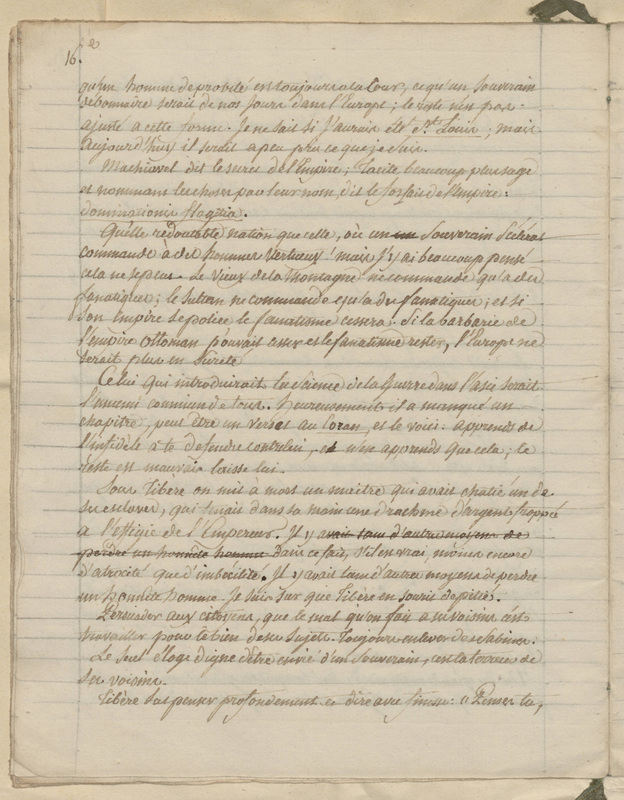 16.e
qu'un homme de probité est toujours à la cour, ce qu'un souverain
débonnaire serait de nos jours dans l'Europe ; le reste n'en pas
ajusté a cette forme. Je ne sait si j'aurais été St. Louis ; mais
aujourd'huy il serait a peu près ce que je suis.
Machiavel dit le secret de l'Empire ; Tacite beaucoup plus sage
et nommant les choses par leur nom, dit le forfait de l'Empire :
dominationis flagitia.
Quelle redoutable nation que celle, où un souverain scélérat
commande à des hommes vertueux ! mais j'y ai beaucoup pensé
cela ne se peut. Le Vieux de la Montagne ne commande qu'a des
fanatiques ; le Sultan ne commande qu'a des fanatiques ; et si
son Empire se police le fanatisme cessera. Si la barbarie de
l'empire ottoman pouvait cesser et le fanatisme rester, l'Europe ne
serait plus en sureté
Celui qui introduirait la science de la Guerre dans l'asie serait
l'ennemi commun de tous. heureusement il a manqué un
chapitre, peut être un verset au Coran, et le voici : apprends de
l'infidèle à te defendre contre lui, et n'en apprends que cela ; le
reste est mauvais laisse lui.
Sous Tibere on mit à mort un maitre qui avait chatié un de
ses esclaves, qui tenait dans sa main une drachme d'argent frappée
a l'effigie de l'Empereur. Il y avait tant d'autres moyens de
perdre un honnête homme Dans ce fait, s'il est vrai, moins encore
d'atrocité que d'imbécilité. Il y avait tant d'autres moyens de perdre
un honnête homme. Je suis sur que Tibere en sourit de pitié.
Persuader aux citoyens, que le mal qu'on fait a ses voisins c'est
travailler pour le bien de ses sujets. Toujours enlever des Sabines.
Le seul éloge digne d'être envié d'un Souverain, c'est la terreur de
ses voisins.
Tibère sut penser profondement et dire avec finesse : "Pensez tu,